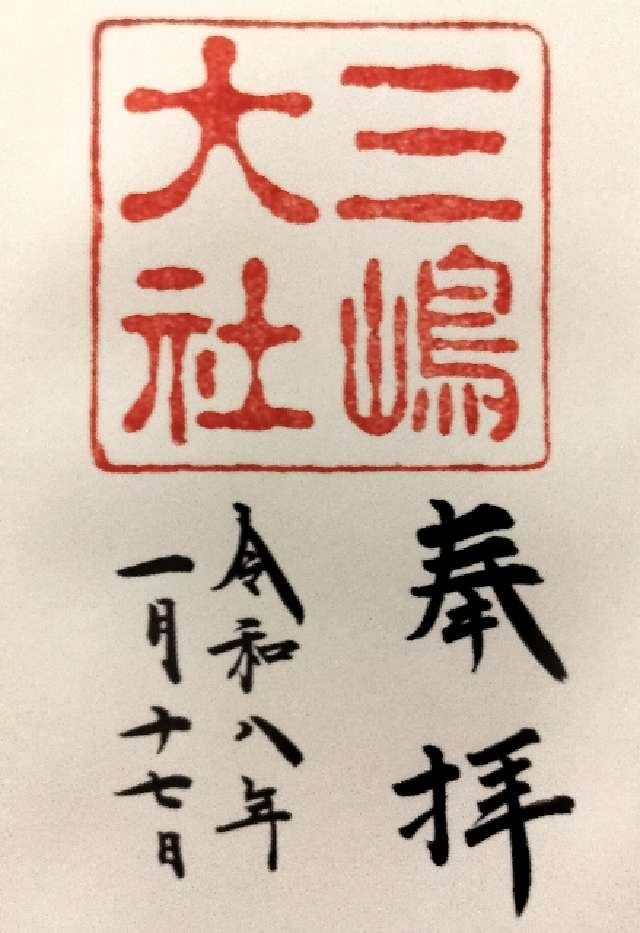 三嶋
大社
奉拝
令和八年
一月十七日